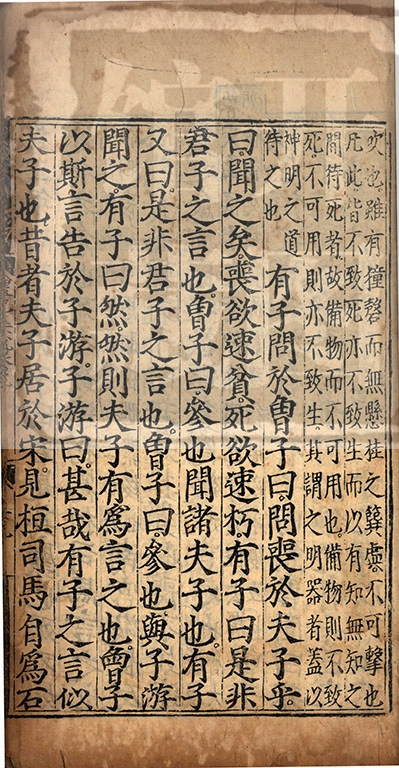 吹也雖有鐘磬而無懸挂之簨虡不可擊也
凡此皆不致死亦不致生而以有知無知之
間待死者故備物而不可用也備物則不致
死不可用則亦不致生其謂之明器者蓋以
神明之道
待之也
有子問於曾子曰問喪於夫子乎
曰聞之矣喪欲速貧死欲速朽有子曰是非
君子之言也曾子曰參也聞諸夫子也有子
又曰是非君子之言也曾子曰參也與子游
聞之有子曰然然則夫子有爲言之也曾子
以斯言告於子游子游曰甚哉有子之言似
夫子也昔者夫子居於宋見桓司馬自爲石